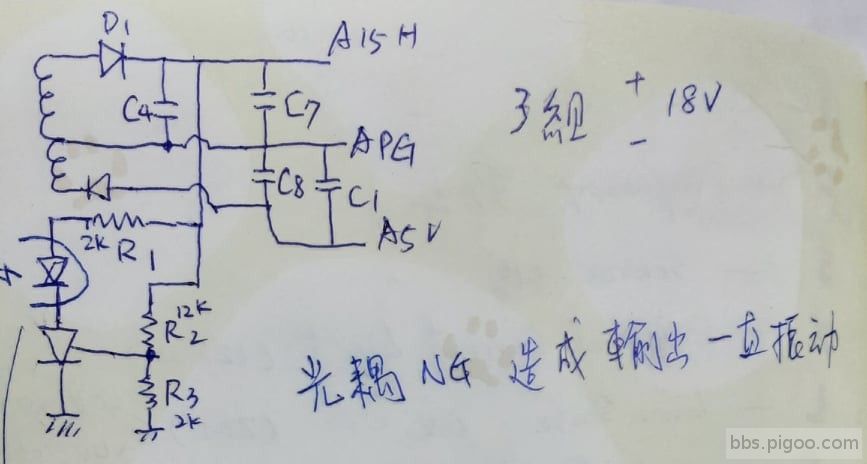 D1
A15H
C4
C7
3組 + - 18V
APG
C8
C1
2K
R1
A5V
12K
R2
R3
2K
光耦 NG 造成 輸出 一直振動
bbs.pigoo.com